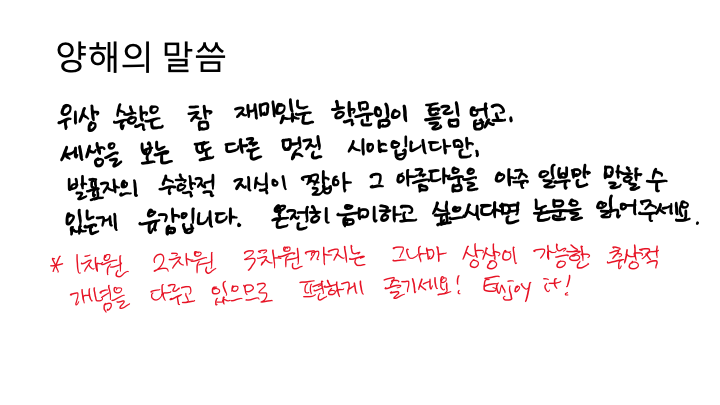 양해의 말씀
위상 수학은 참 재미있는 학문임이 틀림 없고,
세상을 보는 또 다른 멋진 시야입니다만,
발표자의 수학적 지식이 짧아 그 아름다움을 아주 일부만 말할 수
있는게 유감입니다. 온전히 음미하고 싶으시다면 논문을 읽어주세요.
* 1차원 2차원 3차원까지는 그나마 상상이 가능한 추상적
개념을 다루고 있으므로 편하게 즐기세요! Enjoy it!